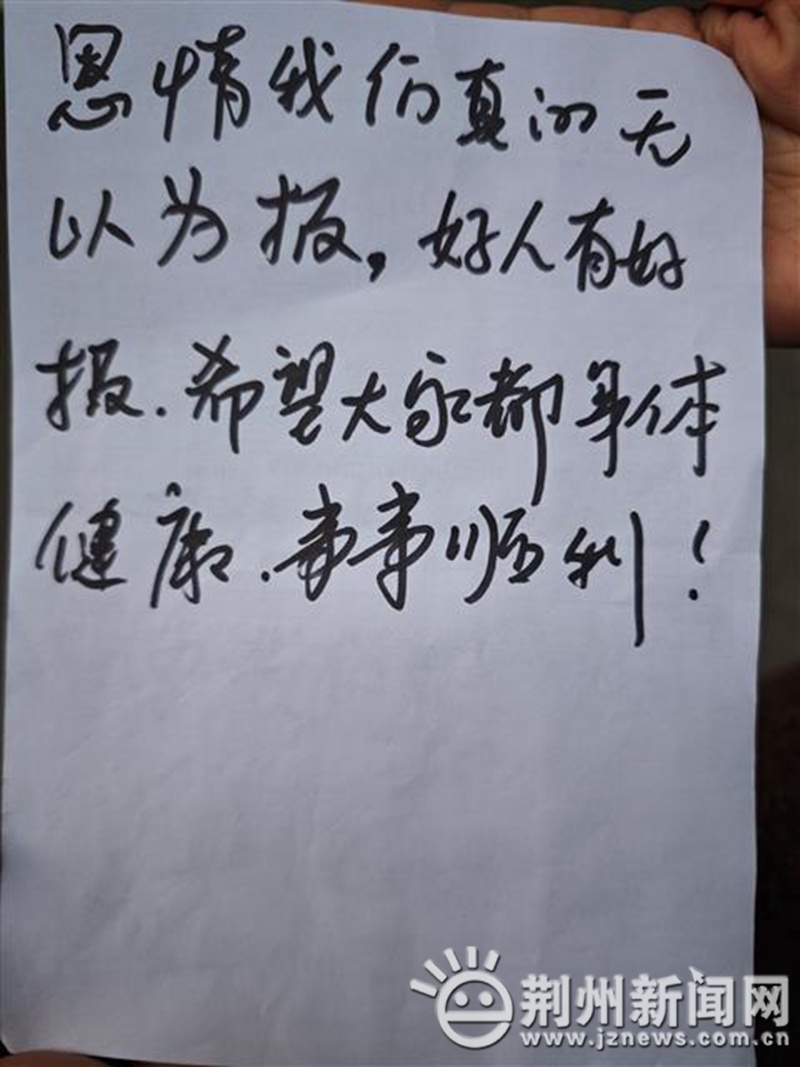 恩情我们真的无
以为报，好人有好
报.希望大家都身体
健康.事事顺利！
荆州新闻网
www.jznews.com.cn